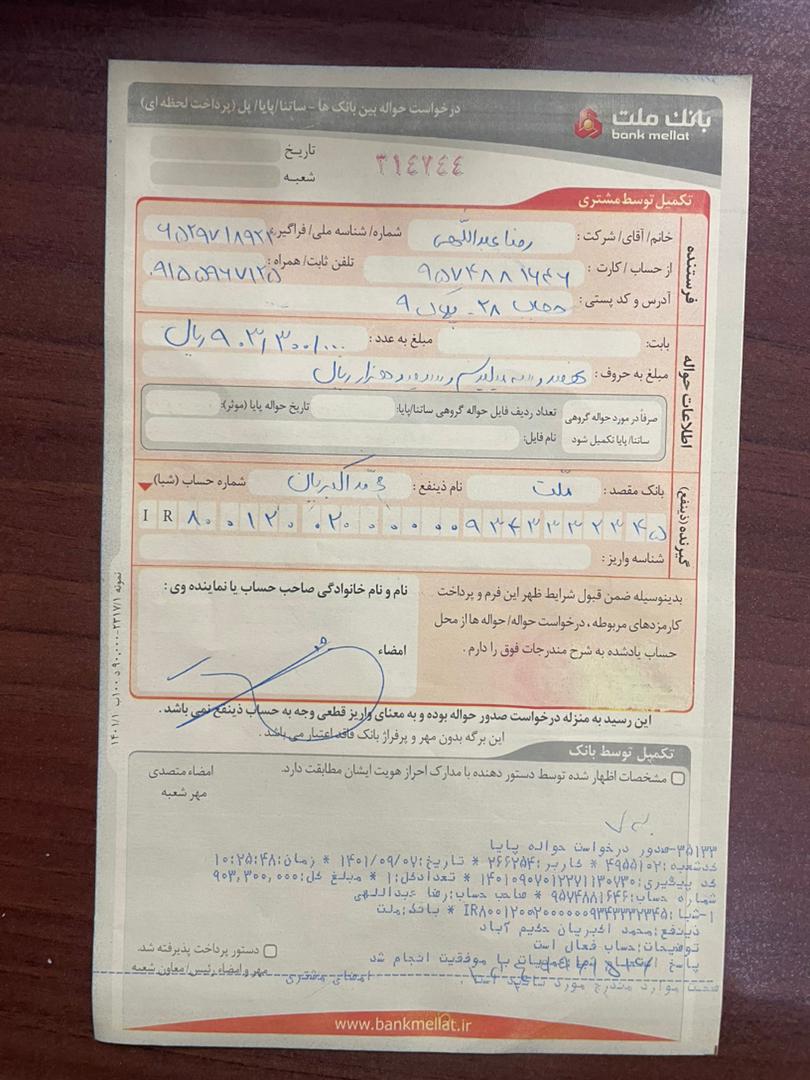 درخواست حواله بین بانک ها - ساتنا/پایا/ پل (پرداخت لحظه ای)
بانک ملت
bank mellat
تاریخ
شعبه
۳۱٤۷٤٤
تکمیل توسط مشتری
فرستنده
خانم/ آقای/ شرکت: رضا عبداللهی شماره/ شناسه ملی/ فراگیر:
از حساب / کارت: ۹۵۷۴۸۸۱۶۴۶ تلفن ثابت/ همراه: ۰۹۱۵۵۹۶۷۱۲۵
آدرس و کد پستی: ۲۸ - پلاک ۹
اطلاعات حواله
بابت: مبلغ به عدد: ۹۰۳/۳۰۰/۰۰۰ ریال
مبلغ به حروف: نهصد و سه میلیون و سیصد هزار ریال
صرفاً در مورد حواله گروهی ساتنا/ پایا تکمیل شود
تعداد ردیف فایل حواله گروهی ساتنا/پایا: تاریخ حواله پایا (موثر):
نام فایل:
گیرنده (ذینفع)
بانک مقصد: ملت نام ذینفع: محمد اکبریان شماره حساب (شبا)
IR ۸۰۰۱۲۰۰۲۰۰۰۰۰۰۹۳۴۳۳۳۲۳۴۵
شناسه واریز:
بدینوسیله ضمن قبول شرایط ظهر این فرم و پرداخت
کارمزدهای مربوطه، درخواست حواله/ حواله ها از محل
حساب یادشده به شرح مندرجات فوق را دارم.
نام و نام خانوادگی صاحب حساب یا نماینده وی:
امضاء
این رسید به منزله درخواست صدور حواله بوده و به معنای واریز قطعی وجه به حساب ذینفع نمی باشد.
این برگه بدون مهر و پرفراژ بانک فاقد اعتبار می باشد.
تکمیل توسط بانک
مشخصات اظهار شده توسط دستور دهنده با مدارک احراز هویت ایشان مطابقت دارد.
امضاء متصدی
مهر شعبه
۳۵۱۳۳-صدور درخواست حواله پایا
کدشعبه:۴۹۵۵۱۰۲ * کاربر:۲۶۶۲۵۴ * تاریخ:۱۴۰۱/۰۹/۰۷ * زمان:۱۰:۲۵:۴۸
کد پیگیری:۱۴۰۱۰۹۰۷۰۱۲۲۷۱۱۳۰۷۳۰ * تعدادکل:۱ * مبلغ کل:۹۰۳,۳۰۰,۰۰۰
شماره حساب:۹۵۷۴۸۸۱۶۴۶ * صاحب حساب:رضا عبداللهی
۱-شبا:IR۸۰۰۱۲۰۰۲۰۰۰۰۰۰۹۳۴۳۳۳۲۳۴۵ * بانک:ملت
ذینفع:محمد اکبریان حکیم آباد
توضیحات:حساب فعال است
پاسخ با موفقیت انجام شد
موارد مندرج مورد تایید است
امضای مشتری
دستور پرداخت پذیرفته شد.
مهر و امضاء رئیس/ معاون شعبه
www.bankmellat.ir